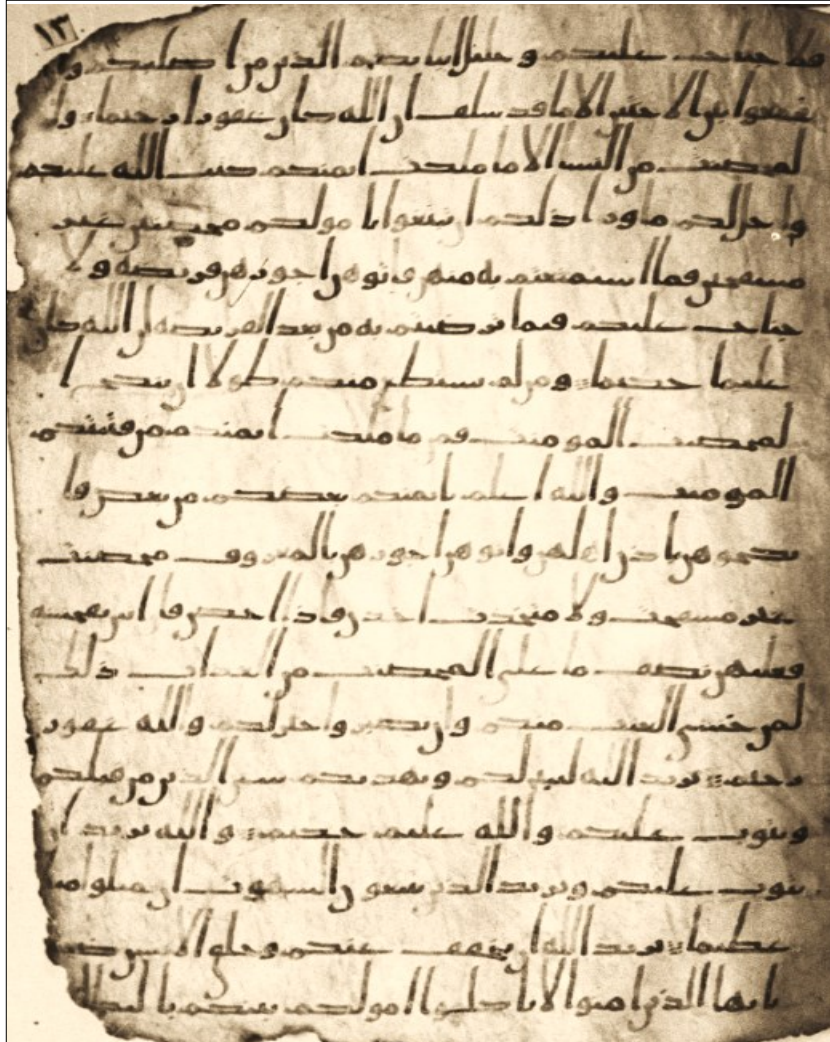 ١٣
فلا جناح عليكم وحليل ابنايكم الذين من اصلبكم وا
تجمعوا بين الاختين الا ما قد سلف ان الله كان غفورا رحيما وا
لمحصنت من النسا الا ما ملكت ايمنكم كتب الله عليكم
واحل لكم ما ورا ذلكم ان تبتغوا بامولكم محصنين غير
مسفحين فما استمتعتم به منهن فاتوهن اجورهن فريضه ولا
جناح عليكم فيما ترضيتم به من بعد الفريضه ان الله كان
عليما حكيما ومن لم يستطع منكم طولا ان ينكح ا
لمحصنت المومنت فمن ما ملكت ايمنكم من فتيتكم
المومنت والله اعلم بايمنكم بعضكم من بعض فا
نكحوهن باذن اهلهن واتوهن اجورهن بالمعروف محصنت
غير مسفحت ولا متخذت اخدن فاذا احصن فان اتين بفحشه
فعليهن نصف ما على المحصنت من العذاب ذلك
لمن خشي العنت منكم وان تصبروا خير لكم والله غفور
رحيم يريد الله ليبين لكم ويهديكم سنن الذين من قبلكم
ويتوب عليكم والله عليم حكيم والله يريد ان
يتوب عليكم ويريد الذين يتبعون الشهوت ان تميلوا ميلا
عظيما يريد الله ان يخفف عنكم وخلق الانسن ضعيفا
يايها الذين امنوا لا تاكلوا امولكم بينكم بالبطل